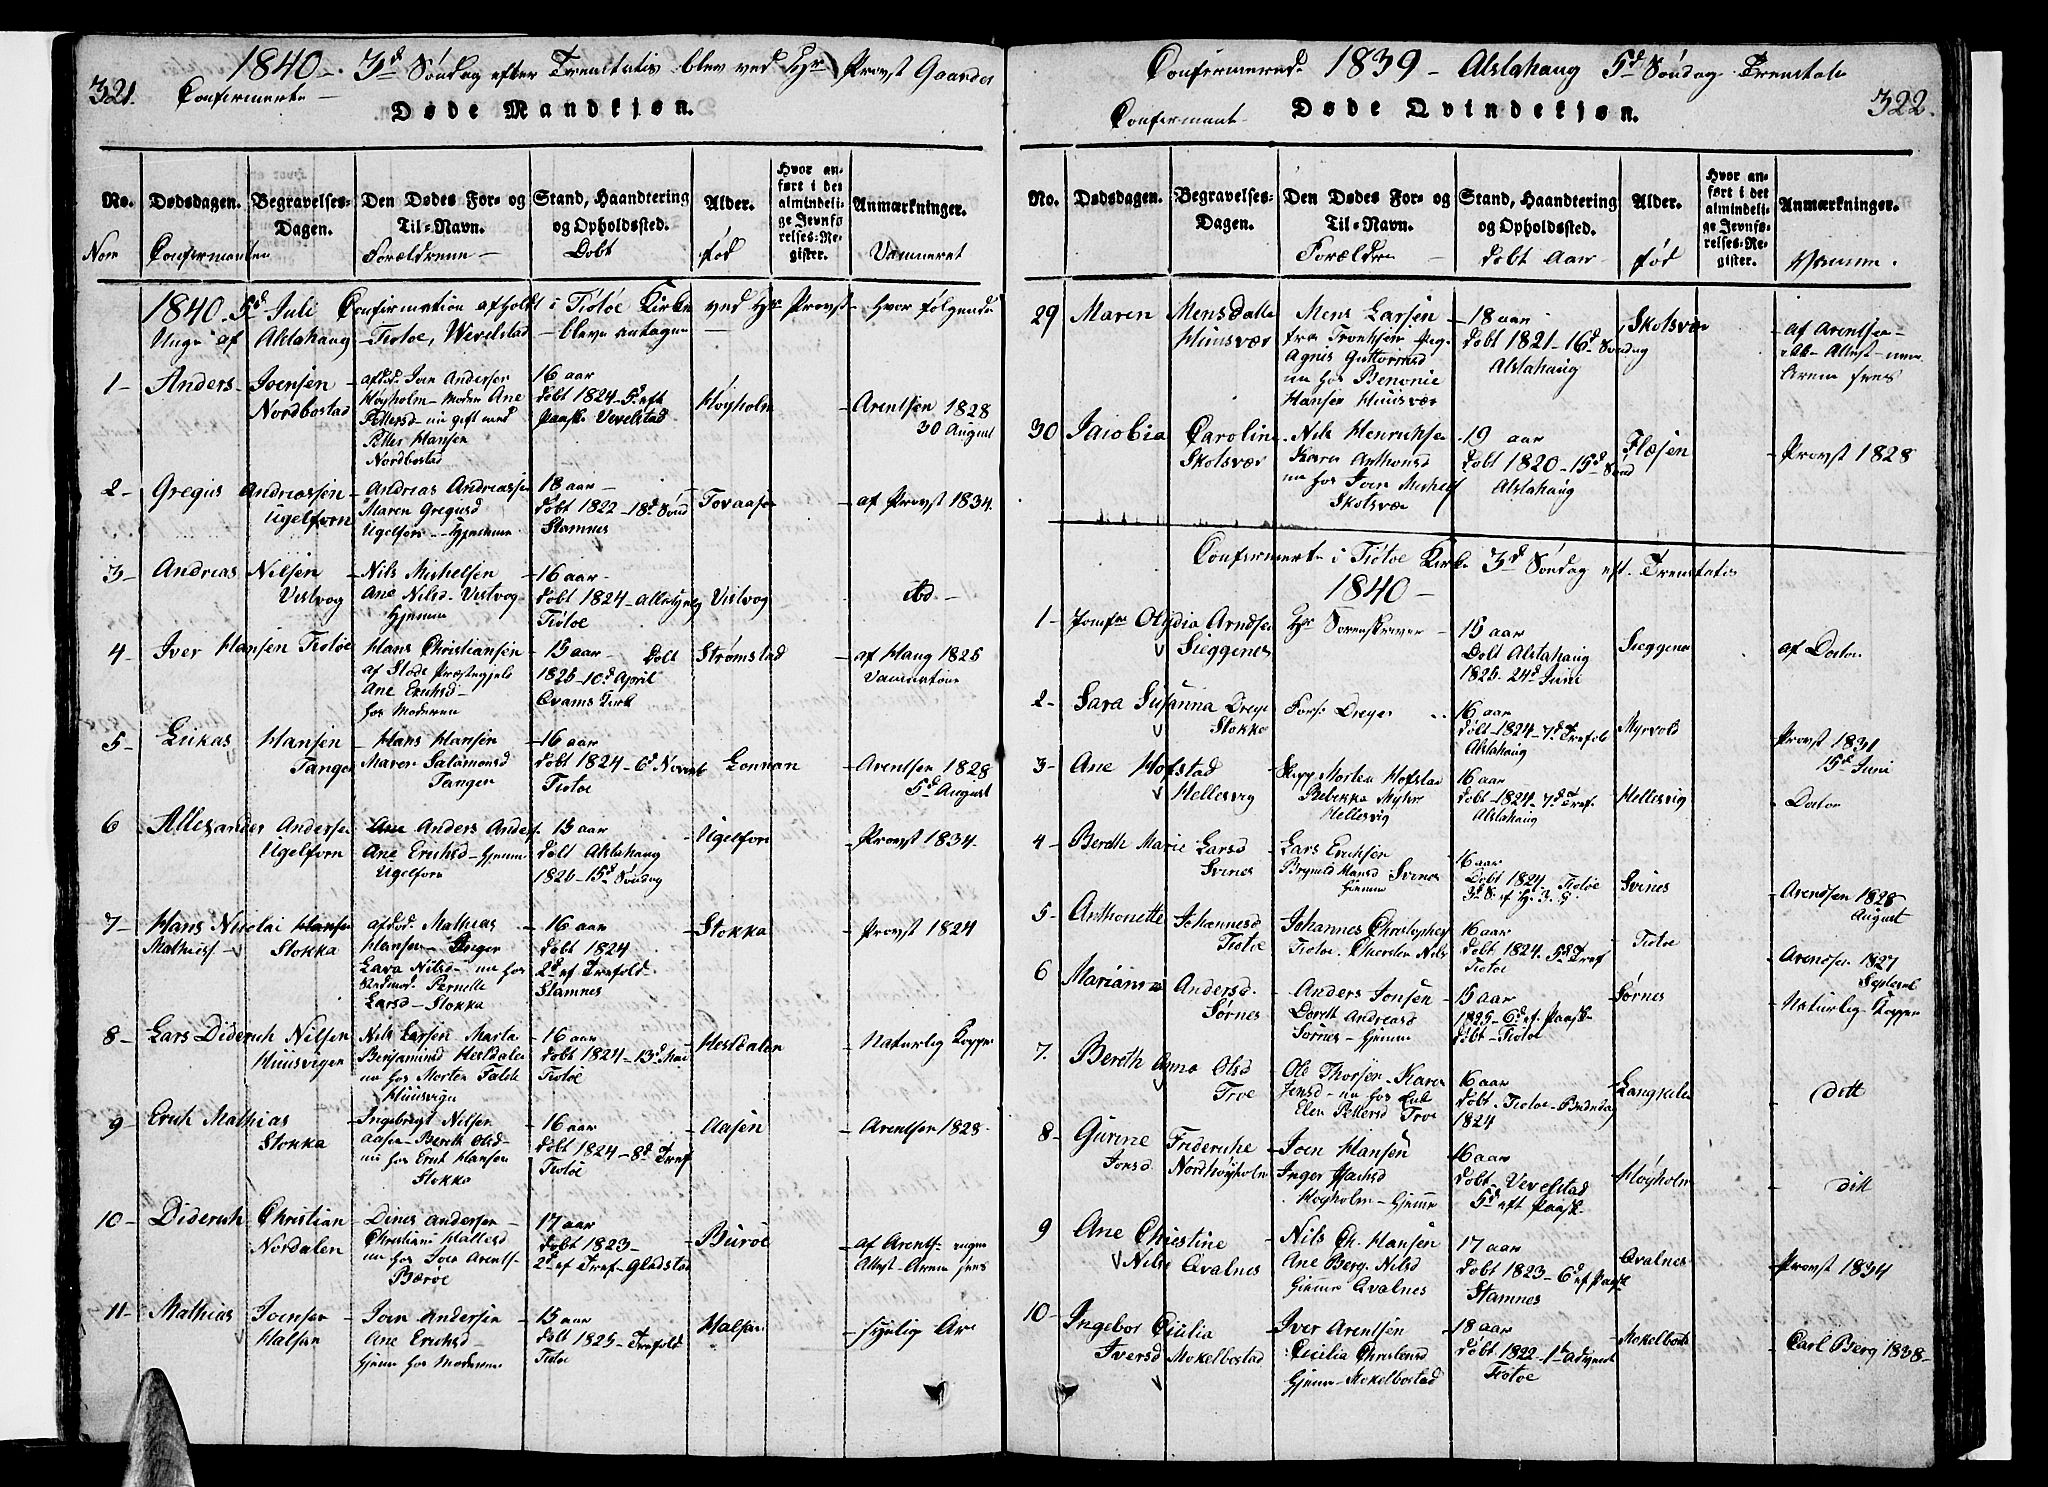 321.
1840 - 3d Søndag efter Trenitatis blev ved Hr Provst Gaarder
Confirmerte
Døde Mandkjøn.
No. Dødsdagen. Begravelses-Dagen. Den Dødes For- og Til-Navn. Stand, Haandtering og Opholdssted. Alder. Hvor anført i det almindelige Jevnførelses-Register. Anmærkninger.
Confirmanten Forældrene Døbt Fød Vaxineret
1840. 5d Juli Confirmation afholdt i Tiøtøe Kirke ved Hr Provst hvor følgende
Unge af Alstahaug Tiøtøe, Wevelstad bleve antagne
1 - Anders Joensen
Nordbostad
afdøde Joen Andersen
Høyholm - Moder Ane
Pettersd - nu gift med
Petter Hansen
Nordbostad
16 aar
døbt 1824 - 5d eft
Paaske Vevelstad
Høyholm
Arentsen 1828
30 August
2 - Gregus Andreassen
Ugelforn
Andreas Andreassen
Maren Gregusd
Ugelforn - Hjemme
18 aar
døbt 1822 - 18d Sønd
Stamnes
Tovaasen
af Provst 1834.
3 - Andreas Nilsen
Vistvog
Nils Michelsen
Ane Nilsd - Vistvog
Hjemme
16 aar
døbt 1824
Tiøtøe
Vistvog
4 - Iver Hansen Tiøtøe
Hans Christiansen
af Præstegjeld
Ane Erichsd
hos Moderen
15 aar - Døbt
1825 - 10d April
Strømstad
af Haug 1825
5 - Lukas Hansen
Tanger
Hans Hansen
Maren Salamonsd
Tanger
16 aar
døbt 1824 - 6d Novemb
Tiøtøe
Arentsen 1828
5d August
6 Allexander Andersen
Ugelforn
Anders Anders.
Ane Erichsd - Hjemme
Ugelforn
15 aar
Døbt Alstahaug
1825 - 15d Søndag
Ugelforn
Provst 1834.
7 - Hans Nicolai Hansen
Mathiesf Stokka
afdøde Mathias
Hansen
Lava Nilsd - nu hos
Pernelle
Larsd - Stokka
16 aar
døbt 1824
2d ef Trefold
Stamnes
Stokka
Provst 1824
8 - Lars Diderich Nilsen
Huusvigen
Nils Larsen Marta
Benjamind Hesldalen
nu hos Morten Falch
Huusvigen
16 aar
døbt 1824 - 13d Mai
Tiøtøe
Hesldalen
Naturlig Kopper
9 - Erich Mathias
Stokka
Ingebregt Nilsen
Aasen - Bereth Olsd
nu hos Erich Hansen
Stokka
16 aar
døbt 1824 - 8d Tref
Tiøtøe
Aasen
Arentsen 1828.
10 - Diderich Christian
Nordalen
Dines Andersen
Christiani Hallesd
nu hos Joen Arentf.
Bærøe
17 aar
døbt 1823
2d ef Tref - Gladstad
Burøe
af Arents. ingen
Attest
11 - Mathias Joensen
Halsan
Joen Andersen
Ane Erichsd
Hjemme hos Moderen
15 aar
døbt 1825 - Trefold
Tiøtøe
Halsan
synlig Ar
Confirmered 1839 - Alstahaug 5d Søndag Trenitatis
Confirmant
Døde Qvindekjøn.
322.
No. Dødsdagen. Begravelses-Dagen. Den Dødes For- og Til-Navn. Stand, Haandtering og Opholdssted. Alder. Hvor anført i det almindelige Jevnførelses-Register. Anmærkninger.
Forældre døbt Aar fød
29 Maren Mensdatter
Huusvær
Mens Larsen
Agnis Guttormsd
nu hos Benonie
Hansen Huusvær
18 aar
døbt 1821 - 16d Søndag
Alstahaug
Skotsvær
af Arentsen
30 Jacobia Caroline
Skotsvær
Nils Henrichsen
Karen Anthonsd
nu hos Joen Michelsf
Skotsvær
19 aar
døbt 1820 - 15d Sønd
Alstahaug
Flæsen
Provst 1828
Confirmerte i Tiøtøe Kirke 3d Søndag eft. Trenitatis
1840 -
1 - Jomfru Olydia Arndsen
Sieggenes
Hr Sorenskriver
15 aar
Døbt Alstahaug
1825 - 24d Juni
Sieggenes
af Doctor
2 - Sara Susanna Dreyer
Stokka
Dreyer
16 aar
døbt - 1824 - 7d Trefold
Alstahaug
Myrvold
Provst 1831
15d Juni
3 - Ane Hofstad
Hellesvig
Morten Hofstad
Rebekka Myhre
Hellesvig
16 aar
døbt - 1824 - 7d Tref.
Alstahaug
Hellesvig
Doctor
4 - Bereth Marie Larsd
Svines
Lars Erichsen
Hansd Svines
Hjemme
16 aar
Døbt 1824 Tiøtøe
Svines
Arendsen 1828
August
5 - Anthonette Johannesd
Tiøtøe
Johannes Christophers
Tiøtøe
16 aar
døbt 1824. 5d Tref
Tiøtøe
Tiøtøe
Arendsen 1827
Septemb
6 Marianna Andersd.
Sørnes
Anders Jonsen
Doreth Andreasd
Sørnes - Hjemme
15 aar
1825 - 6d ef. Paaske
døbt - Tiøtøe
Sørnes
Naturlig Kopper
7. Bereth Anna Olsd
Troe
Ole Thorsen - Karen
Jensd - nu hos
Elen Pettersd Troe
16 aar
døbt - Tiøtøe
1824
ditt
8 - Gurine Friderche
Jonsd Nordhøyholm
Joen Hansen
Inger
Høyholm - Hjemme
16 aar
døbt - Vevelstad
5d eft Paaske
Høyholm
ditt
9 Ane Christine
Nilsd Qvalnes
Nils Ch. Hansen
Ane Berg. Nilsd
Hjemme Qvalnes
17 aar
døbt 1823 - 6d ef Paaske
Stamnes
Qvalnes
Provst 1834
10 - Ingebor Ciciilia
Iversd Mokelbostad
Iver Arentsen
Cicilia Christensd
Hjemme - Mokelbostad
18 aar
døbt 1822 - 1te Advent
Tiøtøe
Mokelbost
Carl Berg 1838 -